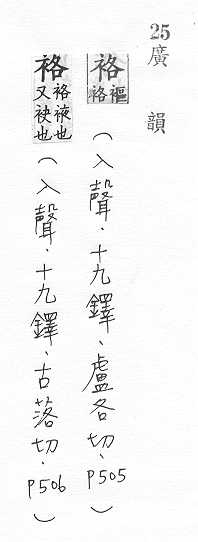 25 廣韻
袼 䙔袼 (入聲．十九鐸、盧各切．P505)
袼 袼也又袂也 (入聲．十九鐸、古落切．P506)